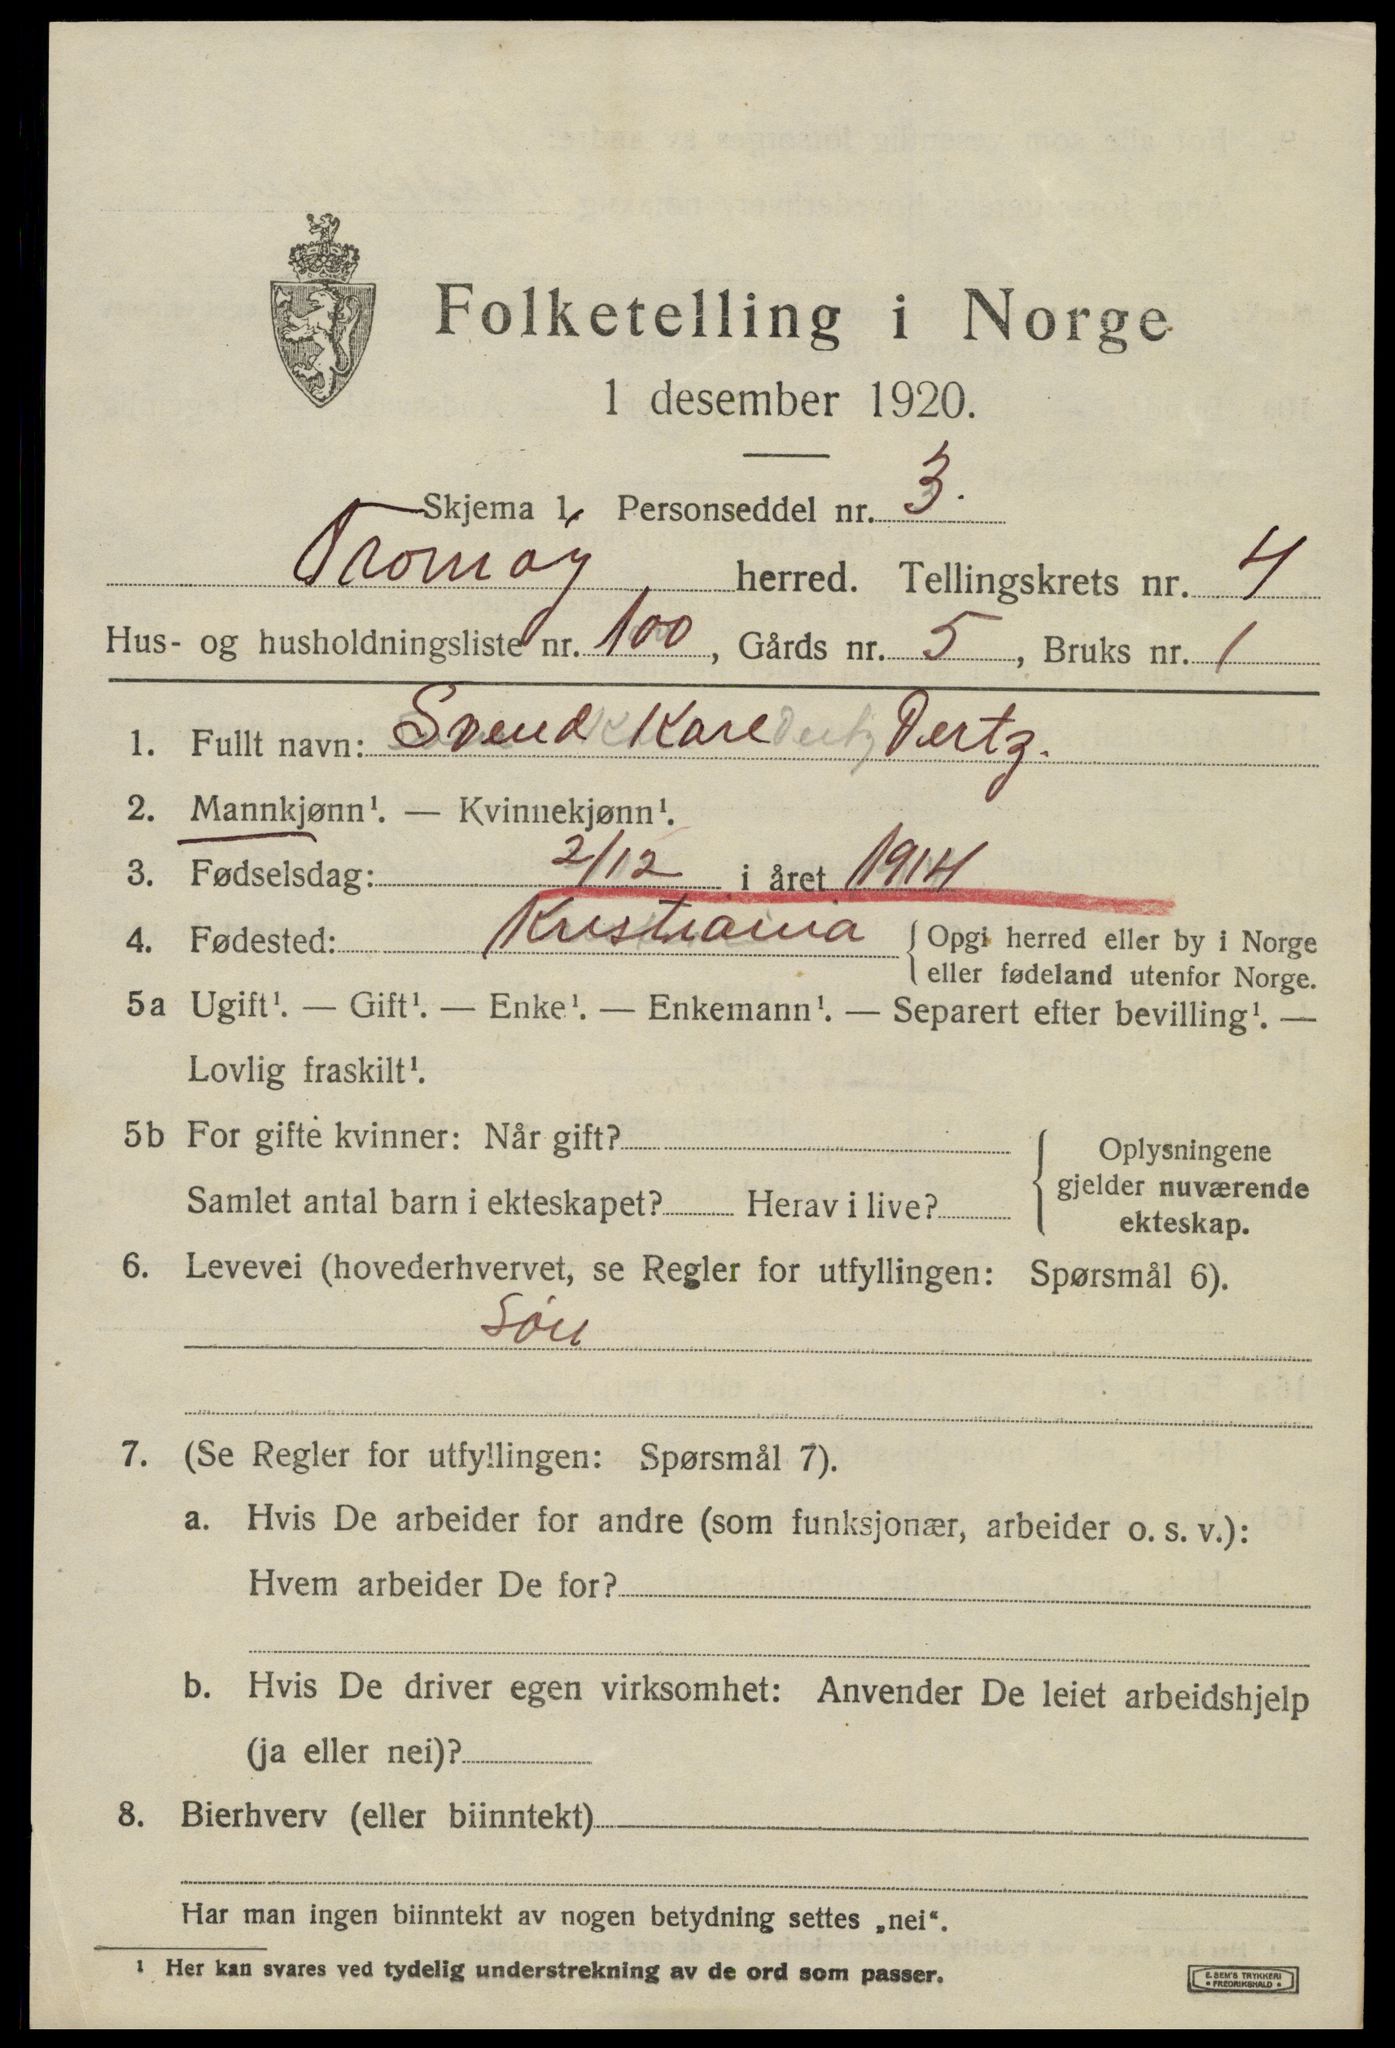 Folketelling i Norge
1 desember 1920.
Skjema 1. Personseddel nr. 3.
Tromøy herred. Tellingskrets nr. 4
Hus- og husholdningsliste nr. 100, Gårds nr. 5, Bruks nr. 1
1. Fullt navn: Svend Kare Dertz.
2. Mannkjønn¹. — Kvinnekjønn¹.
3. Fødselsdag: 2/12 i året 1914
4. Fødested: Kristiania { Opgi herred eller by i Norge
eller fødeland utenfor Norge.
5a Ugift¹. — Gift¹. — Enke¹. — Enkemann¹. — Separert efter bevilling¹. —
Lovlig fraskilt¹.
5b For gifte kvinner: Når gift?
Samlet antal barn i ekteskapet? Herav i live?
{ Oplysningene
gjelder nuværende
ekteskap.
6. Levevei (hovederhvervet, se Regler for utfyllingen: Spørsmål 6).
Søn
7. (Se Regler for utfyllingen: Spørsmål 7).
a. Hvis De arbeider for andre (som funksjonær, arbeider o. s. v.):
Hvem arbeider De for?
b. Hvis De driver egen virksomhet: Anvender De leiet arbeidshjelp
(ja eller nei)?
8. Bierhverv (eller biinntekt)
Har man ingen biinntekt av nogen betydning settes „nei“.
¹ Her kan svares ved tydelig understrekning av de ord som passer.
E. SEM'S TRYKKERI
• FREDRIKSHALD •